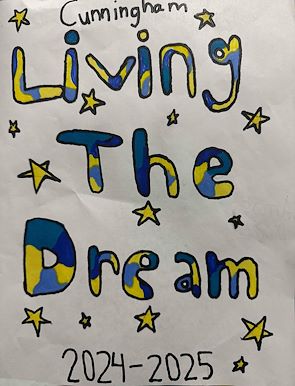 Cunningham
Living
The
Dream
2024-2025